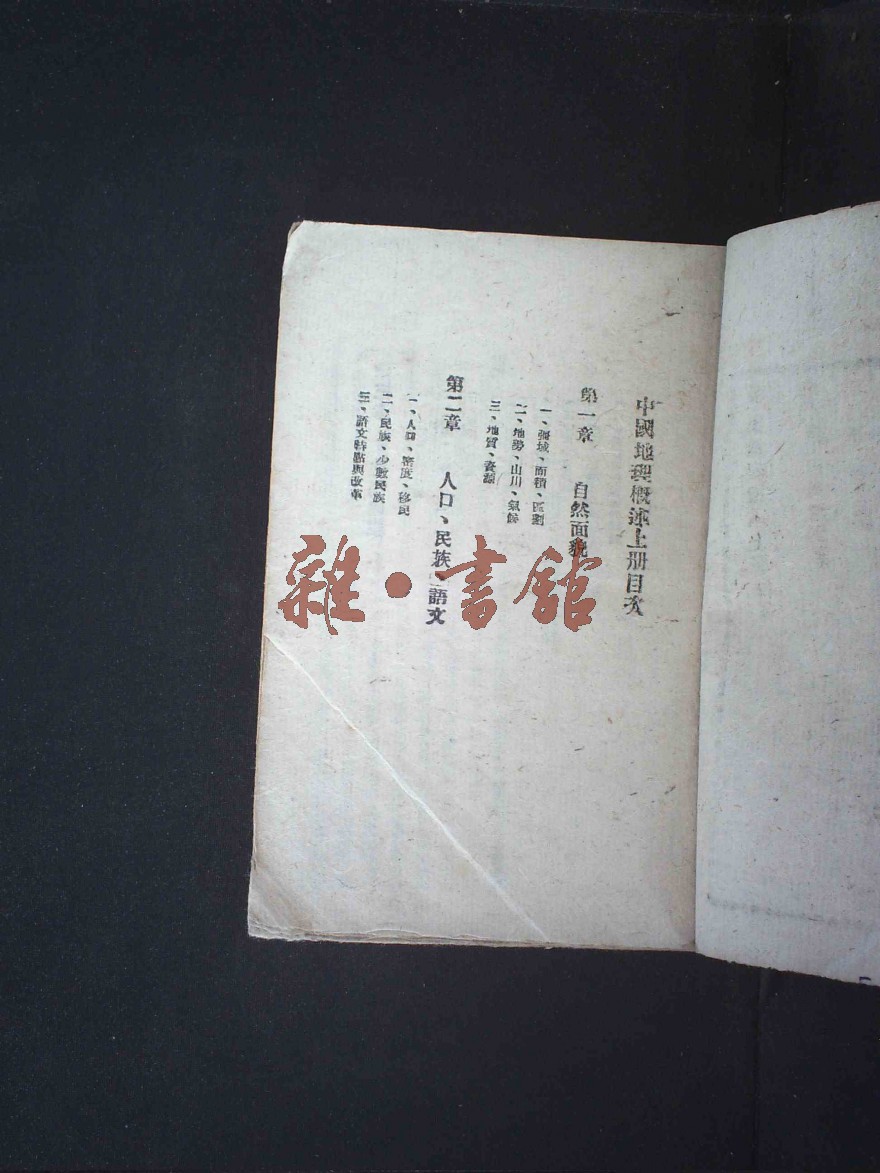 中國地理概述上册目次
第一章 自然面貌
一、疆域、面積、區劃
二、地勢、山川、氣候
三、地質、資源
第二章 人口、民族、語文
一、人口、密度、移民
二、民族、少數民族
三、語文特點與改革
雜·書館